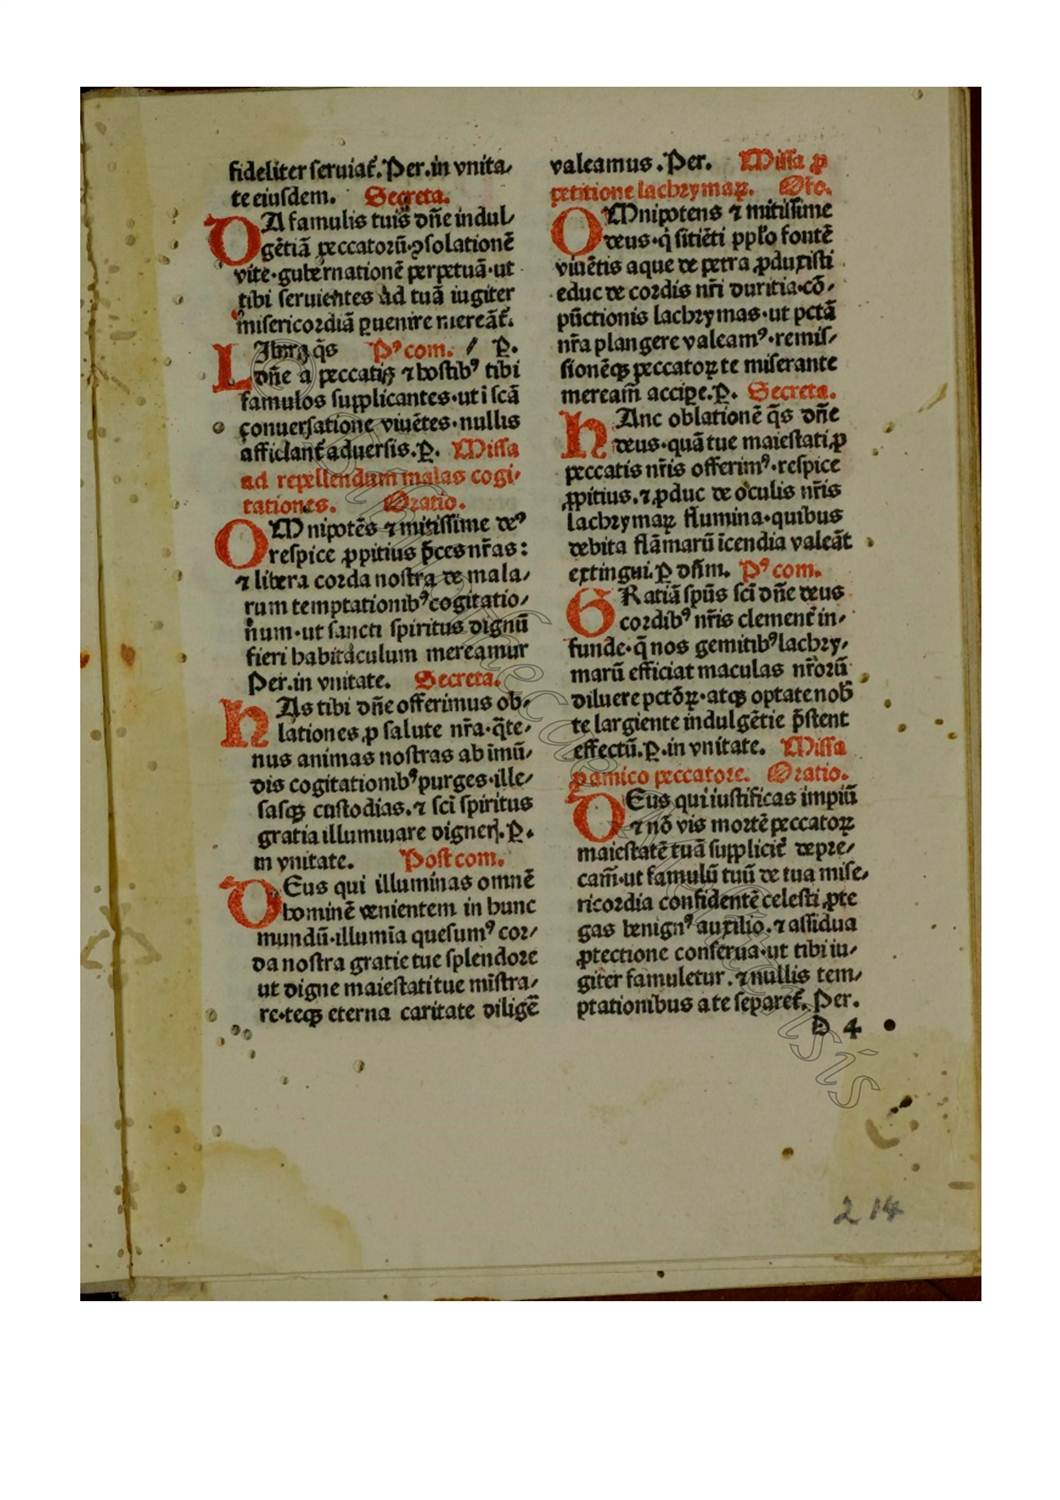 fideliter seruiat᷑. Per.in vnita⸗
te eiusdem. Secreta.
DA famulis tuis dñe indul⸗
gētiā peccatorū·ꝯsolationē
vite·gubernationē perpetuā·ut
tibi seruientes ad tuā iugiter
misericordiā ꝑuenire mereāt᷑.
LIbera q̄s Pꝰ com. / P.
dñe a peccatis ⁊ hostibꝰ tibi
famulos supplicantes·ut i scā
conuersatione viuētes·nullis
afficiant᷑ aduersis.P. Missa
ad repellendum malas cogi⸗
tationes. Oratio.
OMnipotēs ⁊ mitissime deꝰ
respice ꝓpitius p̄ces nr̄as:
⁊ libera corda nostra de mala⸗
rum temptationibꝰ cogitatio⸗
num·ut sancti spiritus dignū
fieri habitaculum mereamur
Per.in vnitate. Secreta.
HAs tibi dñe offerimus ob⸗
lationes ꝓ salute nr̄a·q̄te⸗
nus animas nostras ab imū⸗
dis cogitationibꝰ purges·ille⸗
sasqꝫ custodias.⁊ sci spiritus
gratia illuminare digneris.P.
in vnitate. Post com.
DEus qui illuminas omnē
hominē venientem in hunc
mundū·illumīa quesumꝰ cor⸗
da nostra gratie tue splendore
ut digne maiestati tue mīstra⸗
re·teqꝫ eterna caritate diligē
valeamus. Per. Missa ꝓ
petitione lachrymaꝝ. Oro.
OMnipotens ⁊ mitissime
deus·q̄ sitiēti pplo fontē
viuētis aque de petra ꝓduxisti
educ de cordis nr̄i duritia·cō⸗
pūctionis lachrymas·ut pctā
nr̄a plangere valeamꝰ·remis⸗
sionēqꝫ peccatoꝝ te miserante
meream᷑ accipe.P. Secreta.
HAnc oblationē q̄s dñe
deus·quā tue maiestati ꝓ
peccatis nr̄is offerimꝰ·respice
ꝓpitius.⁊ ꝓduc de oculis nr̄is
lachrymaꝝ flumina·quibus
debita flāmarū īcendia valeāt
extingui.P dñm. Pꝰ com.
GRatiā spūs sci dñe deus
cordibꝰ nr̄is clement᷑ in⸗
funde·q̄ nos gemitibꝰ lachry⸗
marū efficiat maculas nr̄orū
diluere pctōꝝ·atqꝫ optate nob̄
te largiente indulgētie p̄stent
effectū.P.in vnitate. Missa
ꝓ amico peccatore. Oratio.
DEus qui iustificas impiū
⁊ nō vis mortē peccatoꝝ
maiestatē tuā suppliciter depre⸗
cam᷑·ut famulū tuū de tua mise⸗
ricordia confidentē celesti ꝓte
gas benignꝰ auxilio.⁊ assidua
ꝓtectione conserua·ut tibi iu⸗
giter famuletur.⁊ nullis tem⸗
ptationibus a te separet᷑. Per.
D 4
214